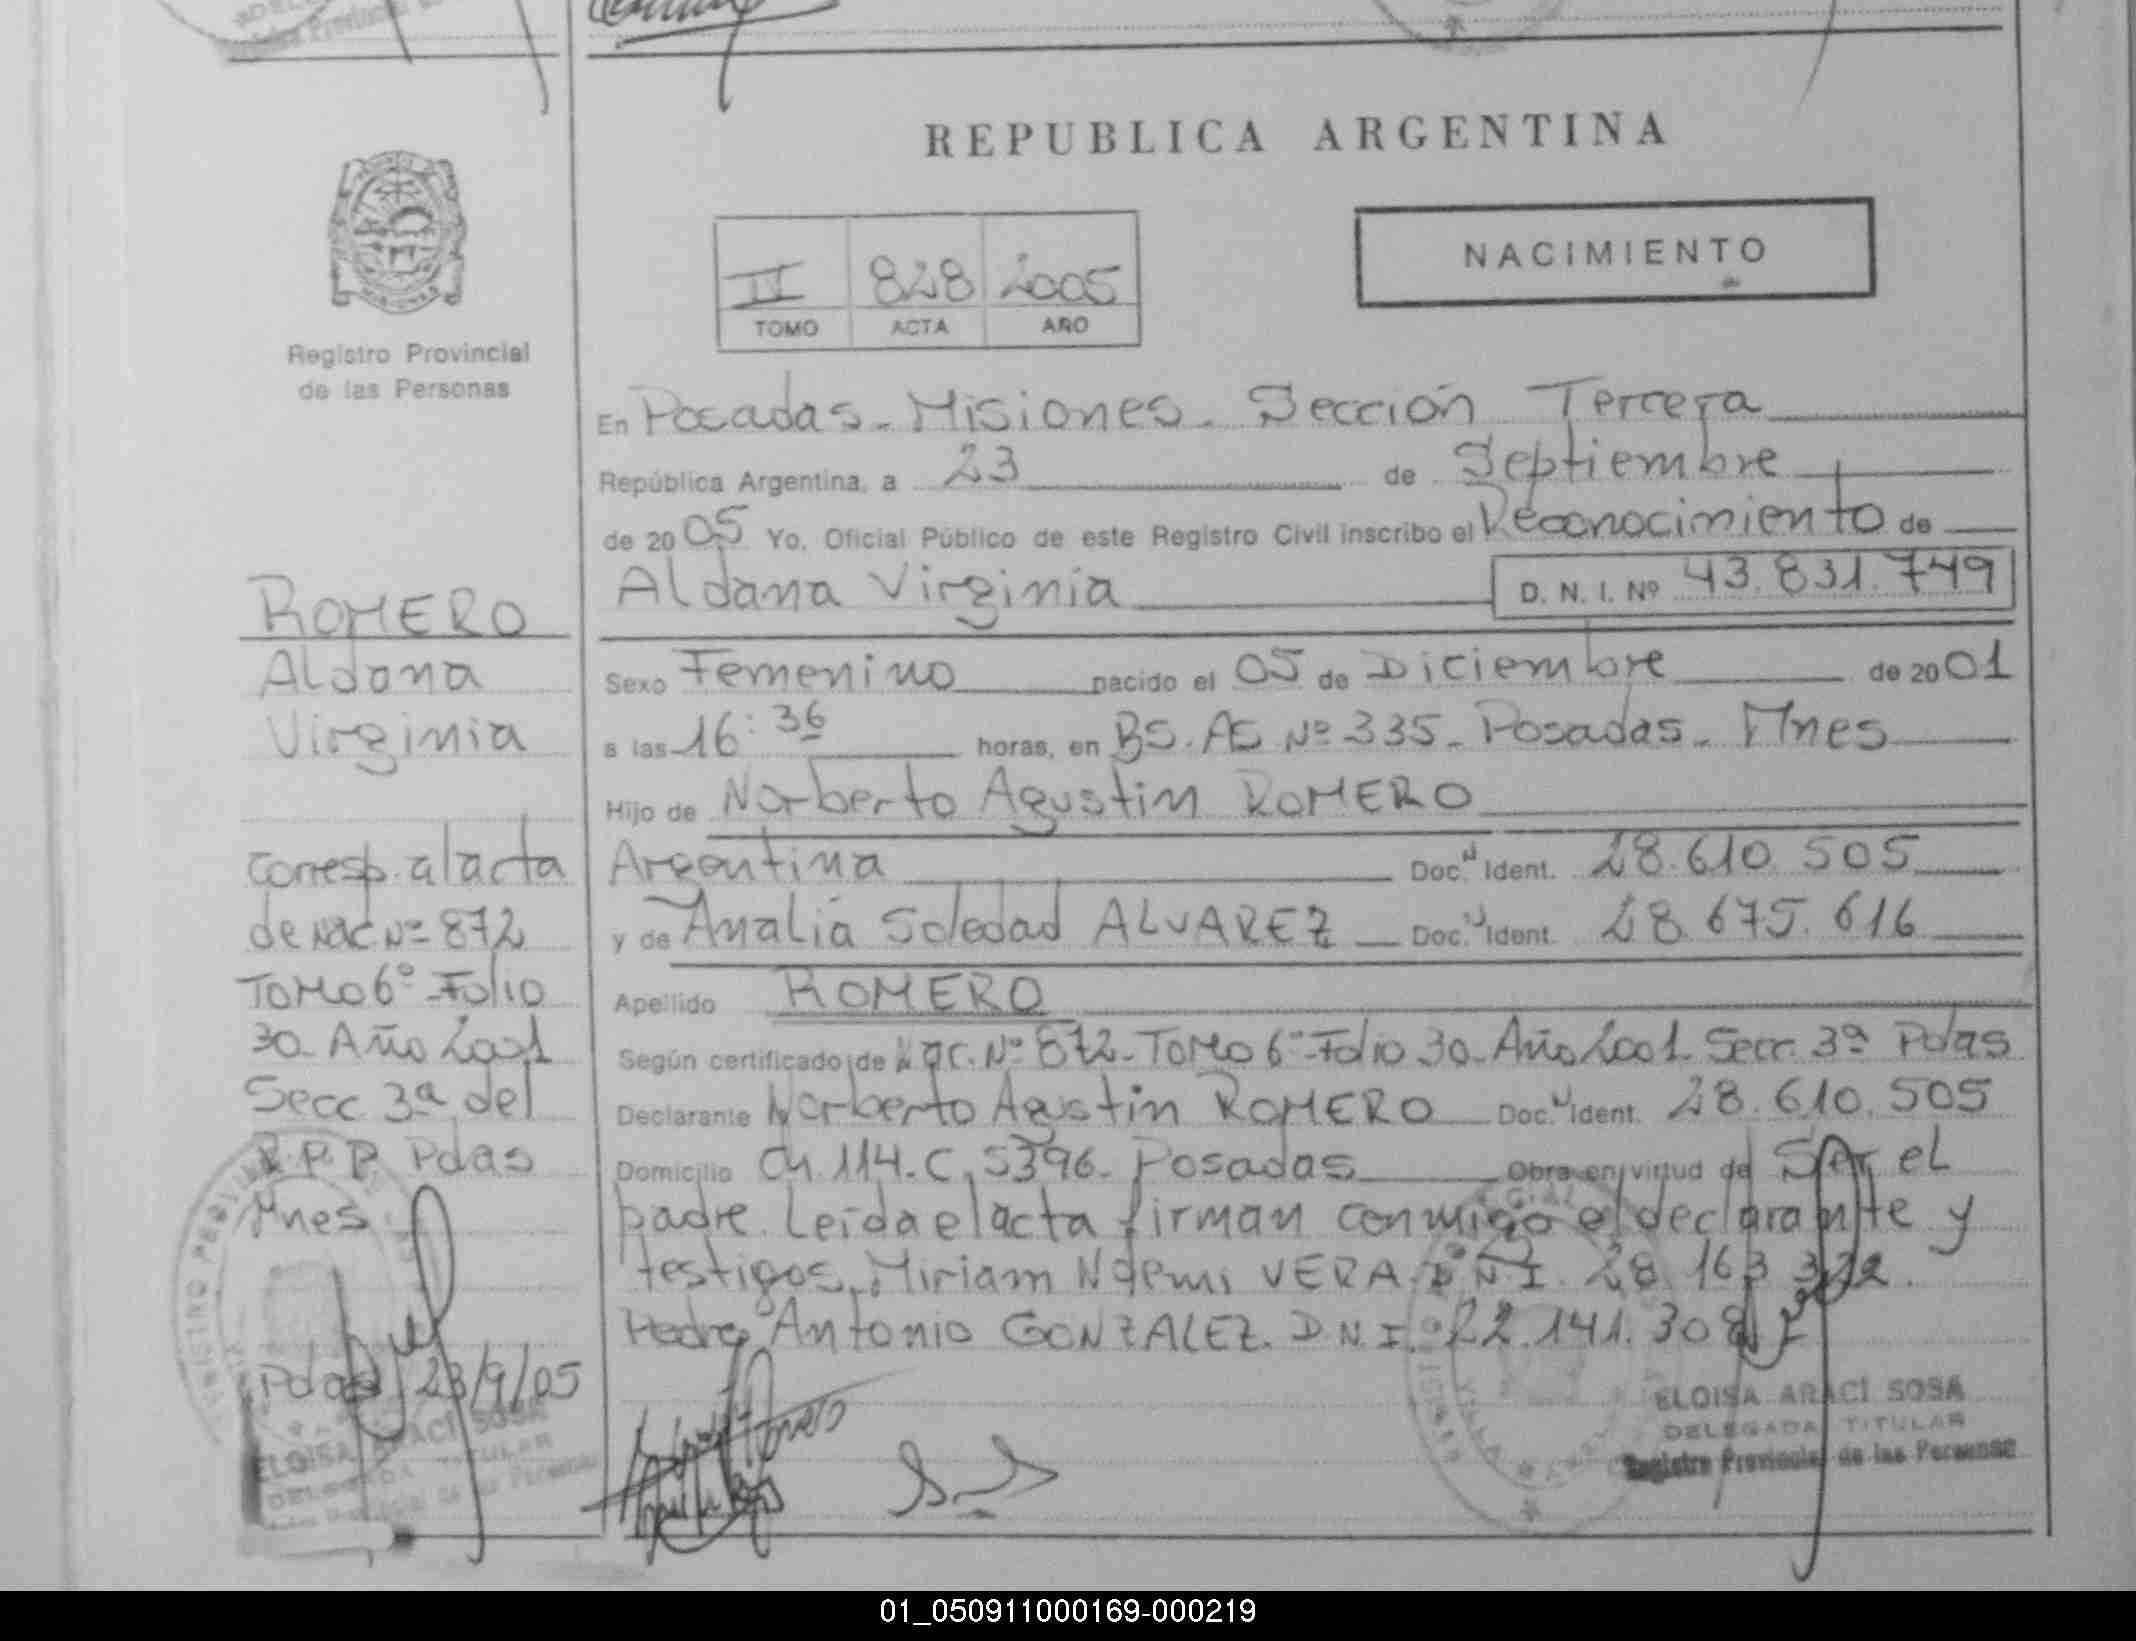 REPUBLICA ARGENTINA
NACIMIENTO
II 828 2005
TOMO ACTA AÑO
Registro Provincial
de las Personas
En Posadas - Misiones - Sección Tercera
República Argentina, a 23 de Septiembre
de 2005 Yo, Oficial Público de este Registro Civil inscribo el Reconocimiento de
Aldana Virginia D. N. I. Nº 43.831.749
Sexo Femenino nacido el 05 de Diciembre de 2001
a las 16:36 horas, en BS. AS Nº 335 - Posadas - Mnes
Hijo de Norberto Agustin ROMERO
Argentina Doc. Ident. 28.610.505
y de Analia Soledad ALVAREZ Doc. Ident. 28.675.616
Apellido ROMERO
Según certificado de Nac. Nº 872 - Tomo 6º - Folio 30 - Año 2001 Secc. 3ª Pdas
Declarante Norberto Agustin ROMERO Doc. Ident. 28.610.505
Domicilio Ch 114 - C. 5396 - Posadas Obra en virtud de Ser el
padre. Leida el acta firman conmigo el declarante y
testigos. Miriam Noemi VERA D.N.I. 28.163.322.
Pedro Antonio GONZALEZ. D.N.I. 22.141.308
ELOISA ARACI SOSA
DELEGADA TITULAR
Registro Provincial de las Personas
ROMERO
Aldana
Virginia
corresp. al acta
de nac. Nº 872
TOMO 6º - Folio
30 - Año 2001
Secc 3ª del
R.P.P. Pdas
Mnes
Pdas 23/9/05
ELOISA ARACI SOSA
DELEGADA TITULAR
01_050911000169-000219